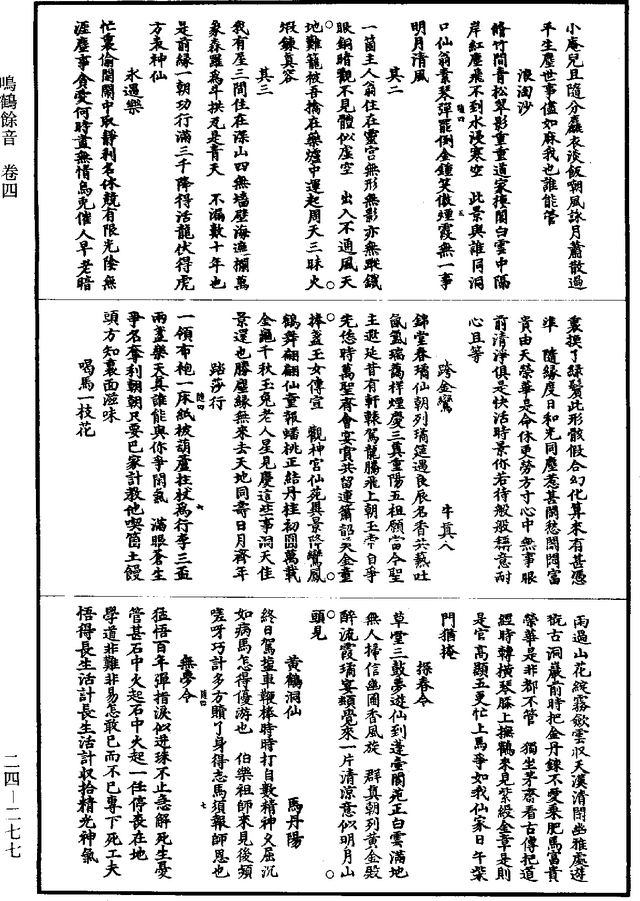 鳴鶴餘音　卷四
小庵兒且隨分麤衣淡飯嘲風詠月蕭散過
平生塵世事儘如麻我也誰能管
浪淘沙
脩竹間青松翠影重重道家樓閣白雲中隔
岸紅塵飛不到水浸寒空　此景與誰同洞
口仙翁素琴彈罷倒金鍾笑傲煙霞無一事
明月清風
其二
一箇主人翁住在靈宮無形無影亦無蹤鐵
眼銅睛觀不見體似虛空　出入不通風天
地難籠被吾擒在藥爐中運起周天三昧火
煅鍊真容
其三
我有屋三間住在深山四無墻壁海遮攔萬
象森羅為斗拱瓦是青天　不漏數十年也
是前緣一朝功行滿三千降得活龍伏得虎
方表神仙
永遇樂
忙裏偷閑鬧中取靜利名休競有限光陰無
涯塵事貪愛何時盡無情烏兔催人早老暗
裏換了綠鬢此形骸假合幻化算來有甚憑
準　隨緣度日和光同塵惹甚閑愁閑悶富
貴由天榮華是命休更勞方寸心中無事眼
前清淨俱是快活時景你若待般般稱意耐
心且等
跨金鸞　牛真人
錦堂春璚仙朝列璚筵遇良辰名香共爇吐
氤氳瑞靄祥煙慶三真重陽五祖願當今聖
主遐延昔有軒轅駕龍騰飛上朝玉帝自爭
先恁時萬聖齊會宴賞共留連簫韶美金童
捧盞玉女傳宣　觀神宮仙苑異景降鸞鳳
鶴舞翩翩仙童報蟠桃正結丹桂初圓萬載
金龜千秋玉兔老人星見慶這些事洞天佳
景還也勝塵緣無來去天地同壽日月齊年
踏莎行
一領布袍一床紙被葫蘆拄杖為行李三盃
兩盞樂天真誰能與你爭閑氣　滿眼蒼生
爭名奪利朝朝只要巴家計教他喫箇土饅
頭方知裏面滋味
喝馬一枝花
雨過山花綻霧歛雲収天漢清閑幽雅處遊
翫古洞巖前時把金丹鍊不愛乘肥馬富貴
榮華是非都不管　獨坐茅齋看古傳把道
經時轉橫琴膝上撫鶴來見紫綬金章是則
是官高顯五更忙上馬爭如我仙家日午柴
門猶掩
探春令
草堂三鼓夢遊仙到蓬壺閬苑正白雲滿地
無人掃信幽圃香風旋　群真朝列黃金殿
醉流霞璚宴頻覺來一片清涼意似明月山
頭見
黃鶴洞仙　馬丹陽
終日駕鹽車鞭棒時時打自數精神久屈沉
如病馬怎得優游也　伯樂祖師來見後頻
嗟呀巧計多方贖了身得志馬須報師恩也
無夢令
猛悟百年彈指淚似迸珠不止急解死生憂
管甚石中火起石中火起一任停喪在地
學道非難非易怎敢已而不已專下死工夫
悟得長生活計長生活計収拾精光神氣
二四—二七七